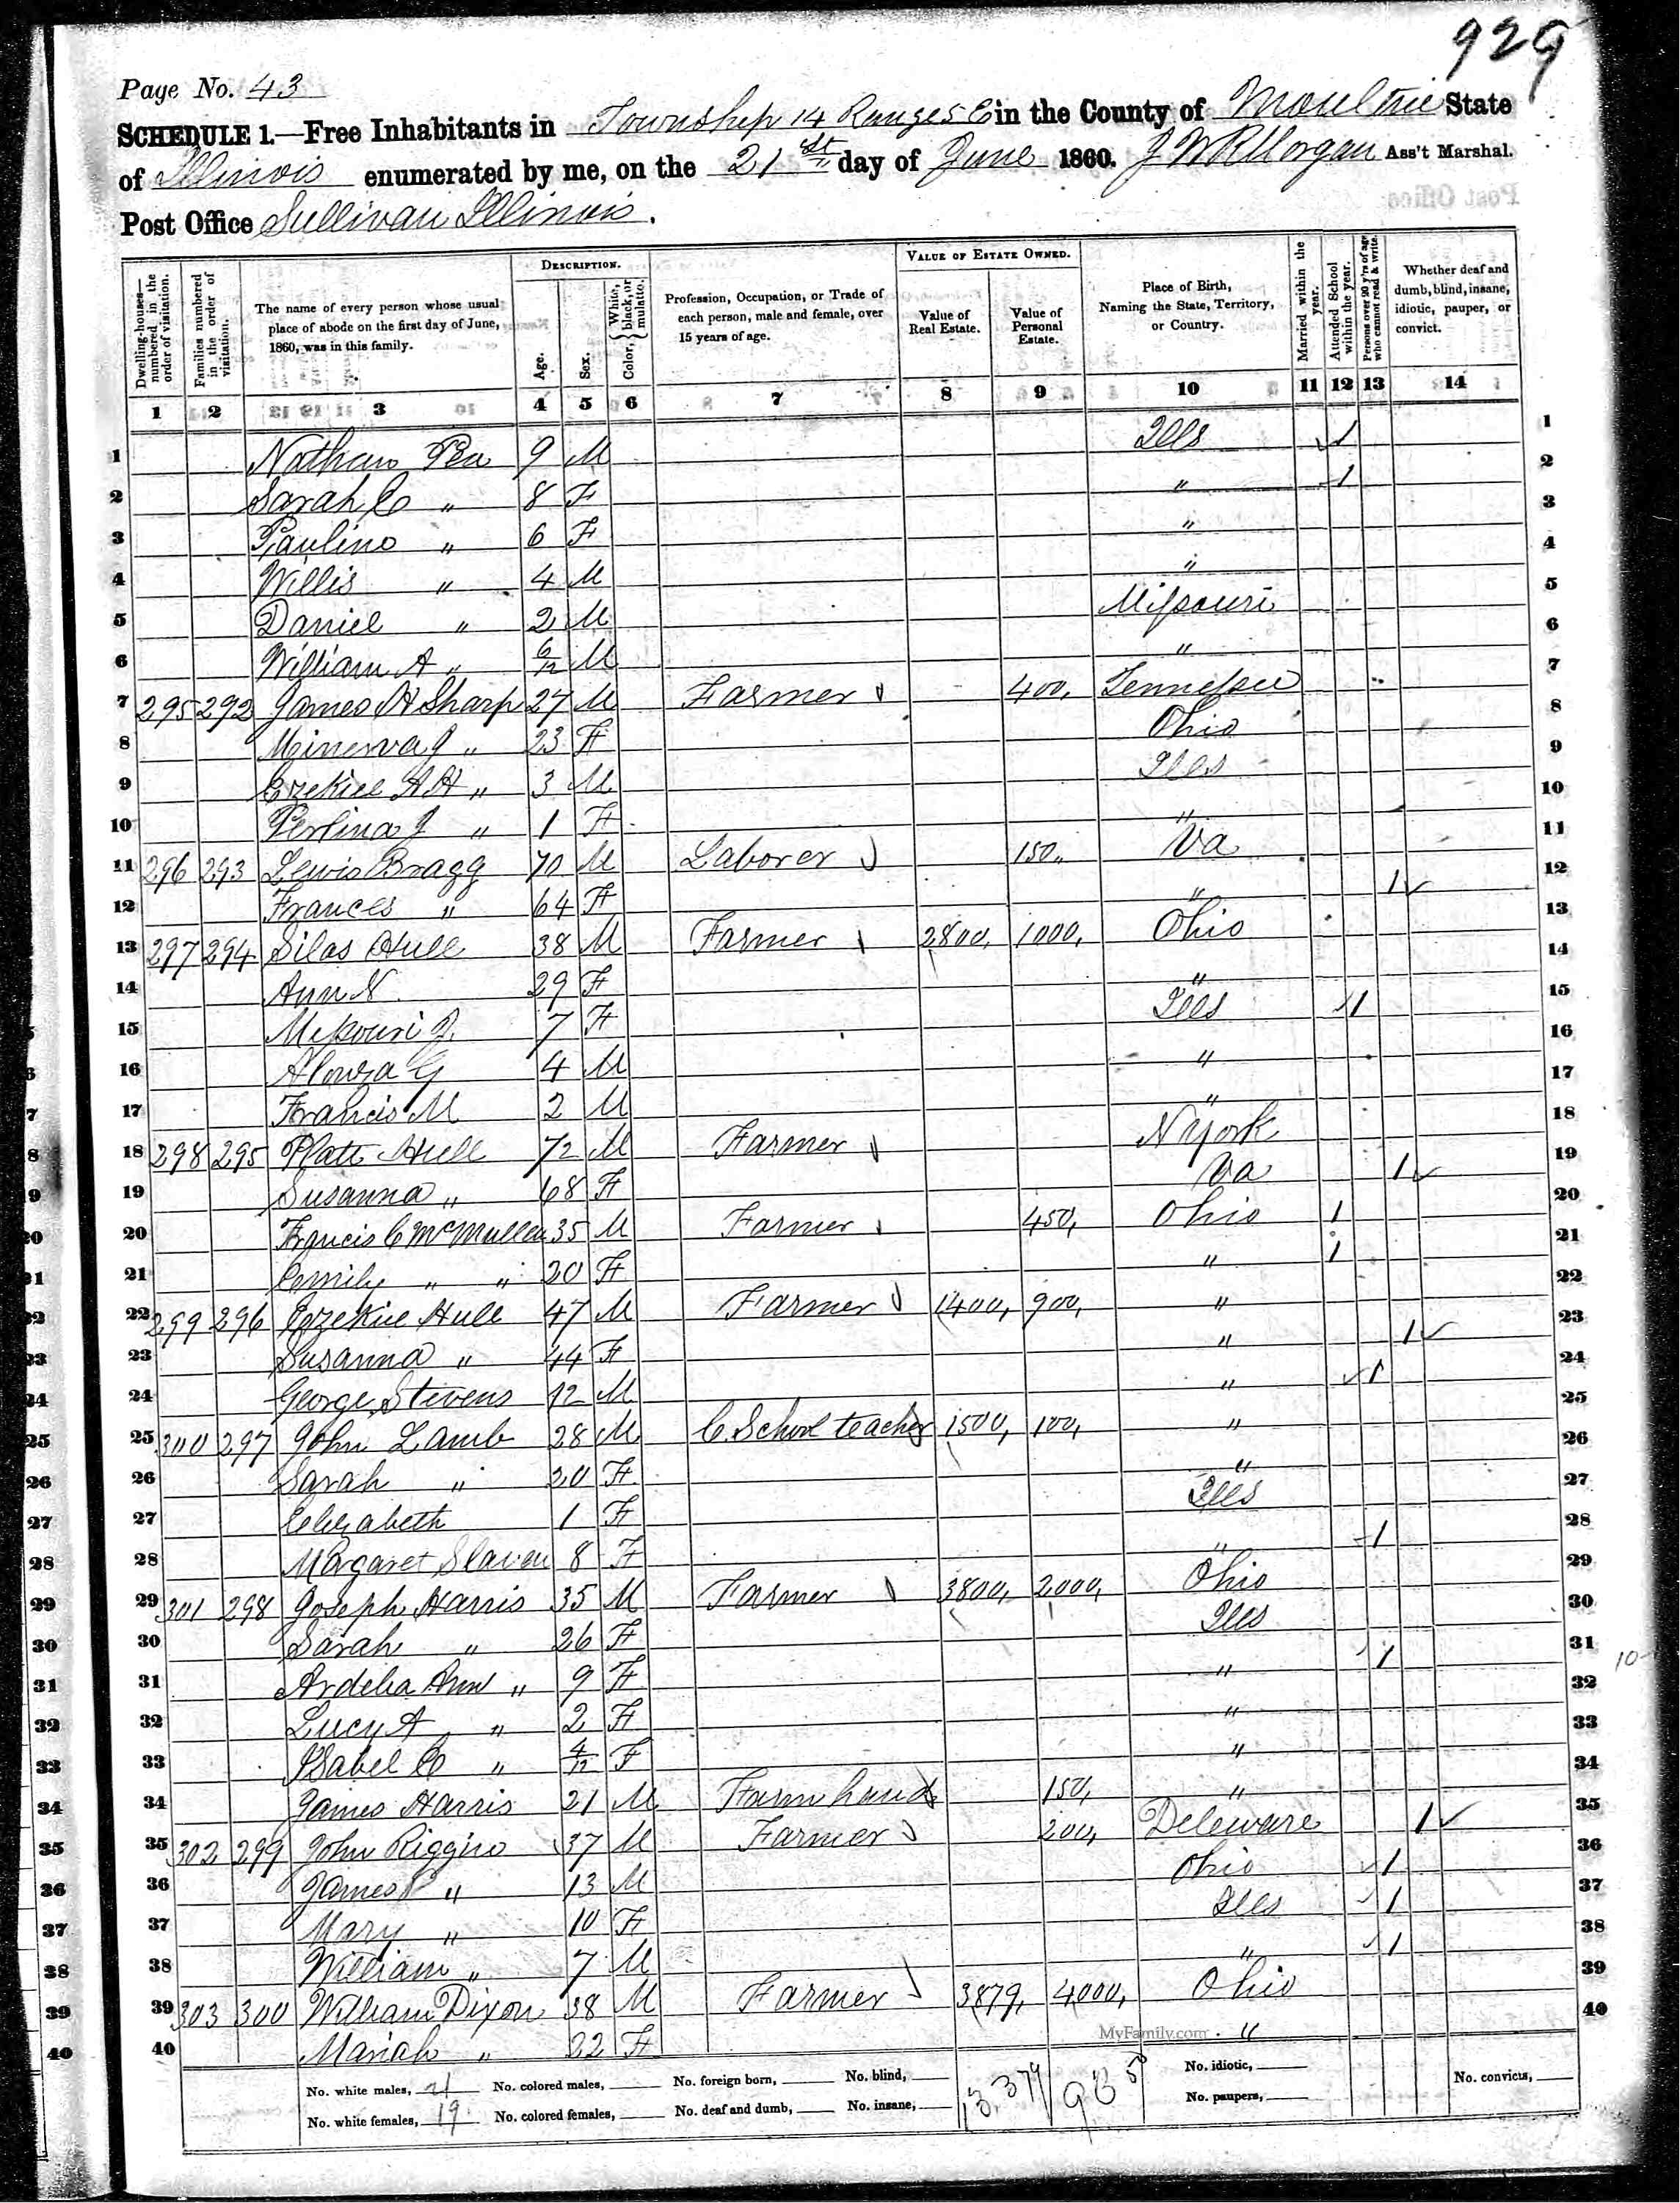 929
Page No. 43
SCHEDULE 1.—Free Inhabitants in Township 14 Range 5 E in the County of Moultrie State
of Illinois enumerated by me, on the 21st day of June 1860. J W R Morgan Ass't Marshal.
Post Office Sullivan Illinois.
Dwelling-houses—numbered in the order of visitation. Families numbered in the order of visitation. The name of every person whose usual place of abode on the first day of June, 1860, was in this family. DESCRIPTION. Age. Sex. Color, White, black, or mulatto. Profession, Occupation, or Trade of each person, male and female, over 15 years of age. VALUE OF ESTATE OWNED. Value of Real Estate. Value of Personal Estate. Place of Birth, Naming the State, Territory, or Country. Married within the year. Attended School within the year. Persons over 20 y'rs of age who cannot read & write. Whether deaf and dumb, blind, insane, idiotic, pauper, or convict.
1 2 3 4 5 6 7 8 9 10 11 12 13 14
1 Nathan Pea 9 M Ills 1 1
2 Sarah C " 8 F " 1 2
3 Paulino " 6 F " 3
4 Willis " 4 M " 4
5 Daniel " 2 M Missouri 5
6 William A " 6/12 M " 6
7 295 292 James H Sharp 27 M Farmer 400, Tennessee 7
8 Minerva J " 23 F Ohio 8
9 Ezekiel A H " 3 M Ills 9
10 Perlina J " 1 F " 10
11 296 293 Lewis Bragg 70 M Laborer 150, Va 11
12 Frances " 64 F " 1 12
13 297 294 Silas Hull 38 M Farmer 2800, 1000, Ohio 13
14 Ann N 29 F " 14
15 Missouri J. 7 F Ills 1 15
16 Alonza G 4 M " 16
17 Francis M 2 M " 17
18 298 295 Platt Hull 72 M Farmer N York 18
19 Susanna " 68 F Va 1 19
20 Francis C McMullen 35 M Farmer 450, Ohio 1 20
21 Emily " " 20 F " 1 21
22 299 296 Ezekiel Hull 47 M Farmer 1400, 900, " 22
23 Susanna " 44 F " 1 23
24 George Stivens 12 M " 1 24
25 300 297 John Lamb 28 M C. School teacher 1500, 100, " 25
26 Sarah " 20 F " 26
27 Elizabeth 1 F Ills 27
28 Margaret Slaven 8 F " 1 28
29 301 298 Joseph Harris 35 M Farmer 3800, 2000, Ohio 29
30 Sarah " 26 F Ills 30
31 Ardelia Ann " 9 F " 1 31
32 Lucy A " 2 F " 32
33 Isabel C " 4/12 F " 33
34 James Harris 21 M Farm hand 150, " 34
35 302 299 John Riggin 37 M Farmer 200, Deleware 1 35
36 James P " 13 M Ohio 1 36
37 Mary " 10 F Ills 1 37
38 William " 7 M " 1 38
39 303 300 William Dixon 38 M Farmer 3879, 4000, Ohio 39
40 Mariah " 22 F " 40
MyFamily.com
No. white males, 21 No. colored males, No. foreign born, No. blind, 13,379 9650 No. idiotic, No. convicts,
No. white females, 19 No. colored females, No. deaf and dumb, No. insane, No. paupers,